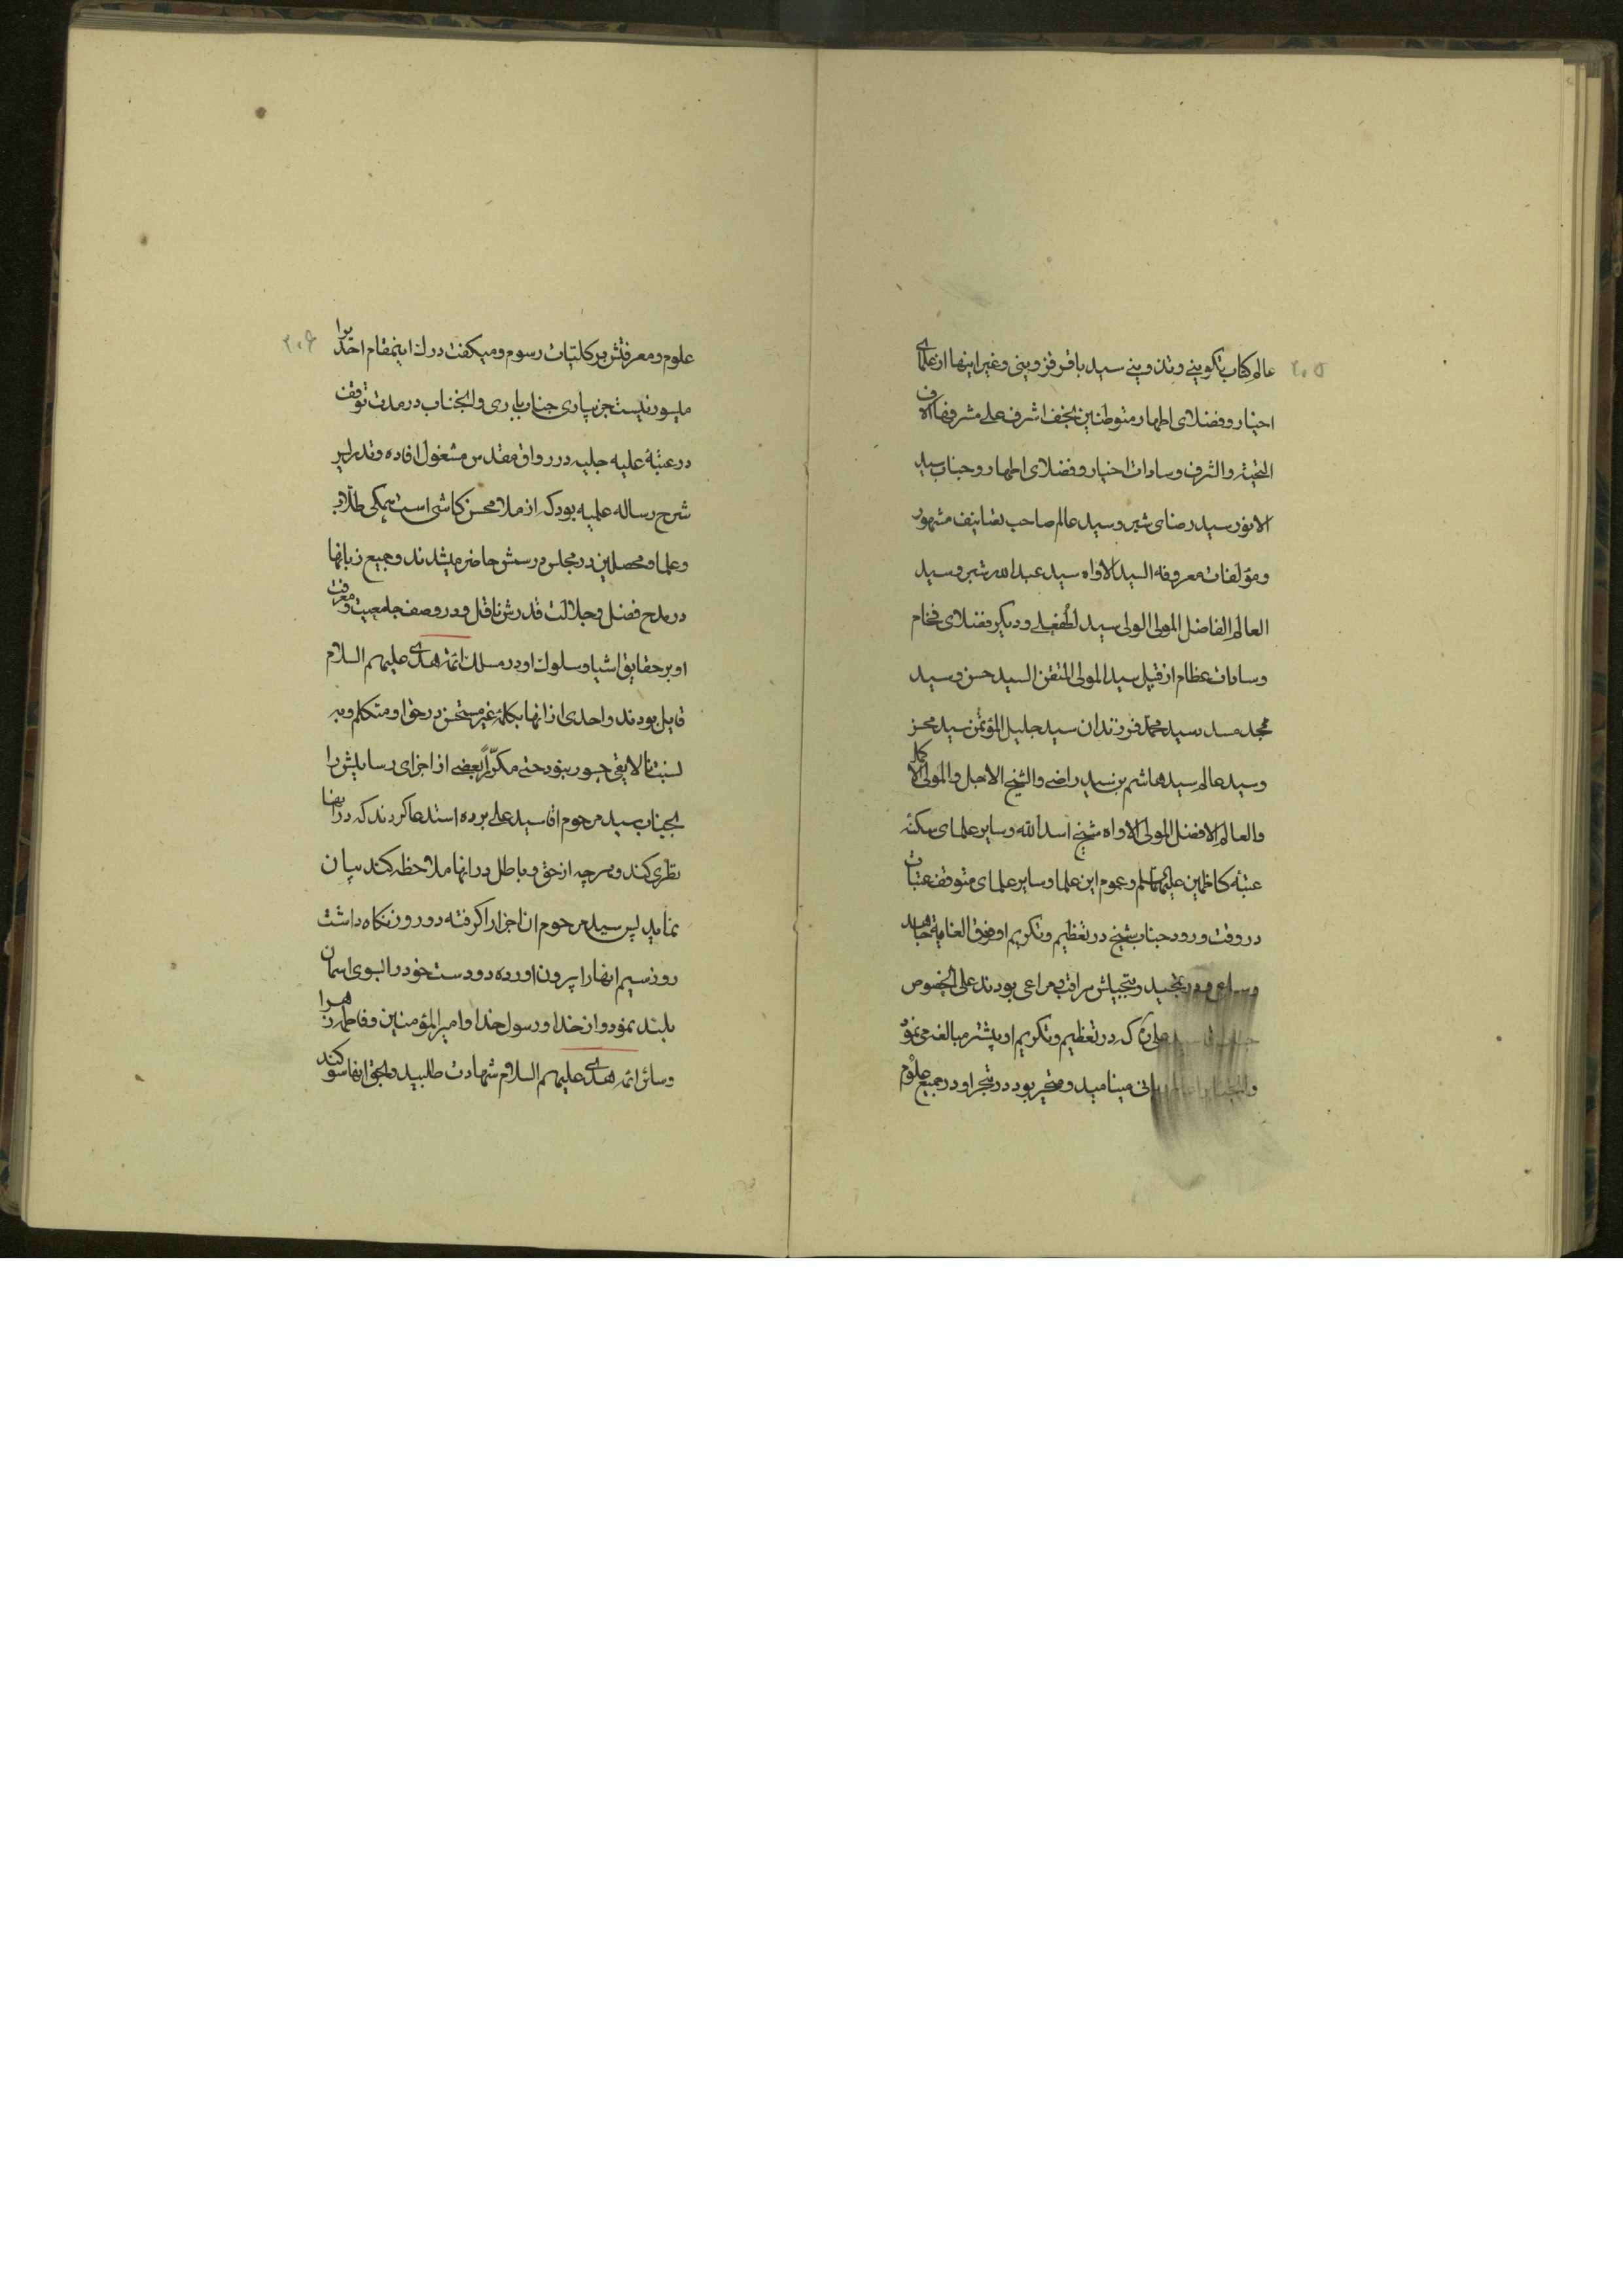 ٢٠٥
عالم کتاب تکوینی و تدوینی سید باقر قزوینی و غیر اینها از علمای
اخیار و فضلای اطهار متوطنین نجف اشرف علی مشرفها الاف
التحیة و الشرف و سادات اخیار و فضلای اطهار و جناب سید
الانور سید رضای شبر و سید عالم صاحب تصانیف مشهور
و مؤلفات معروفه السید الاواه سید عبدالله شبر و سید
العالم الفاضل المولی الولی سید لطفعلی و دیگر فضلای فخام
و سادات عظام از قبیل سید المولی المتقن السید حسن و سید
محمد و سید محمد فرزندان سید جلیل المؤتمن سید محسن
و سید عالم سید هاشم بن سید راضی و الشیخ الاجل و المولی الاکمل
و العالم الافضل المولی الاواه شیخ اسدالله و سایر علمای سکنه
عتبهٔ کاظمین علیهماالسلم و عموم این علما و سایر علمای متوقف عتبات
در وقت ورود جناب شیخ در تعظیم و تکریم او فوق الغایة جاهد
و ساعی و در تمجید و تبجیلش مراقب و مراعی بودند علی الخصوص
سید علی که در تعظیم و تکریم او بیشتر مبالغه می نمود
و انجناب را عالم ربانی مینامید و متحیر بود در تبحر او در جمیع علوم
٢٠٦
علوم و معرفتش بر کلتیات رسوم و میکفت درک اینمقام احدیرا
میسور نیست جز بیاری جناب باری و انجناب در مدت توقف
در عتبهٔ علیه جلیه در رواق مقدس مشغول افاده و تدریس
شرح رساله علمیه بود که از ملا محسن کاشی است همکی طلاب
و علما و محصلین در مجلس درسش حاضر میشدند و جمیع زبانها
در مدح فضل و جلالت قدرش ناقل و در وصف جامعیت و معرفت
او بر حقایق اشیا و سلوک او در مسلک ائمه هدی علیهم السلام
قایل بودند و احدی از انها بکلمهٔ غیر مستحسن در حق او متکلم و به
نسبت نالایقی جسور نبود حتی مکرراً بعضی از اجزای رسایلش را
بجناب سید مرحوم اقا سید علی برده استدعا کردند که در انها
نظری کند و هر چه از حق و باطل در انها ملاحظه کند بیان
نماید پس سید مرحوم ان اجزا را کرفته دو روز نکاه داشت
روز سیم انها را بیرون اورده دو دست خود را بسوی اسمان
بلند نمود و از خدا و رسول خدا و امیرالمؤمنین و فاطمه زهرا
و سائر ائمه هدی علیهم السلام شهادت طلبید و بحق انها سوکند